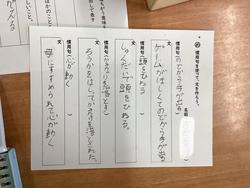 慣用句を使って、文を作ろう。
名前
慣用句（のどから手が出る）
文
ゲームがほしくてのどから手が出る
慣用句（頭をひねる）
文
しゅくだいで頭をひねる。
慣用句（かみなりを落とす）
文
慣用句（心が動く）
文
母にすすめられて心が動く